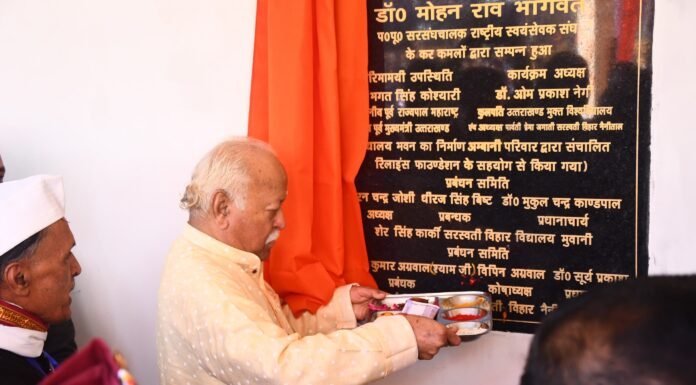 डॉ0 मोहन राव भागवत
प0पू0 सरसंघचालक राष्ट्रीय स्वयंसेवक संघ
के कर कमलों द्वारा सम्पन्न हुआ
रिमामयी उपस्थिति कार्यक्रम अध्यक्ष
भगत सिंह कोश्यारी डॉ. ओम प्रकाश नेगी
नीय पूर्व राज्यपाल महाराष्ट्र कुलपति उत्तराखण्ड मुक्त विश्वविद्यालय
पूर्व मुख्यमंत्री उत्तराखण्ड संघ अध्यक्ष पार्वती प्रेमा जगाती सरस्वती विहार नैनीताल
द्यालय भवन का निर्माण अम्बानी परिवार द्वारा संचालित
रिलाइंस फाउण्डेशन के सहयोग से किया गया)
प्रबंधन समिति
चन्द्र जोशी धीरज सिंह बिष्ट डॉ0 मुकुल चन्द्र काण्डपाल
अध्यक्ष प्रबन्धक प्रधानाचार्य
शेर सिंह कार्की सरस्वती विहार विद्यालय मुवानी
प्रबंधन समिति
कुमार अग्रवाल(श्याम जी) विपिन अग्रवाल डॉ0 सूर्य प्रकाश
प्रबंधक कोषाध्यक्ष
विहार